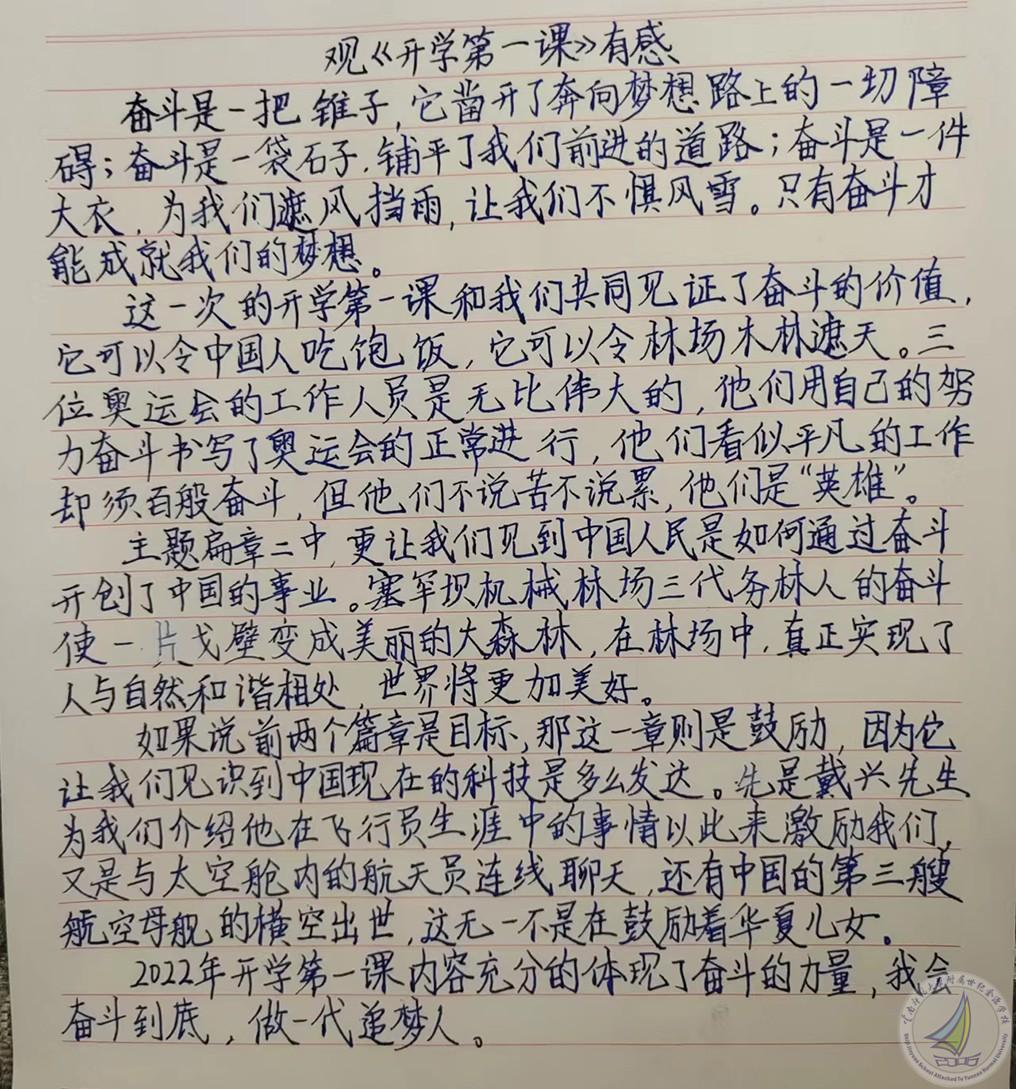 观《开学第一课》有感
奋斗是一把锥子,它凿开了奔向梦想路上的一切障
碍;奋斗是一袋石子,铺平了我们前进的道路;奋斗是一件
大衣,为我们遮风挡雨,让我们不惧风雪。只有奋斗才
能成就我们的梦想。
这一次的开学第一课和我们共同见证了奋斗的价值,
它可以令中国人吃饱饭,它可以令林场木林遮天。三
位奥运会的工作人员是无比伟大的,他们用自己的努
力奋斗书写了奥运会的正常进行,他们看似平凡的工作
却须百般奋斗,但他们不说苦不说累,他们是“英雄”。
主题扁章二中,更让我们见到中国人民是如何通过奋斗
开创了中国的事业。塞罕坝机械林场三代务林人的奋斗
使一片戈壁变成美丽的大森林,在林场中,真正实现了
人与自然和谐相处,世界将更加美好。
如果说前两个篇章是目标,那这一章则是鼓励,因为它
让我们见识到中国现在的科技是多么发达。先是戴兴先生
为我们介绍他在飞行员生涯中的事情以此来激励我们,
又是与太空舱内的航天员连线聊天,还有中国的第三艘
航空母舰的横空出世,这无一不是在鼓励着华夏儿女。
2022年开学第一课内容充分的体现了奋斗的力量,我会
奋斗到底,做一代追梦人。